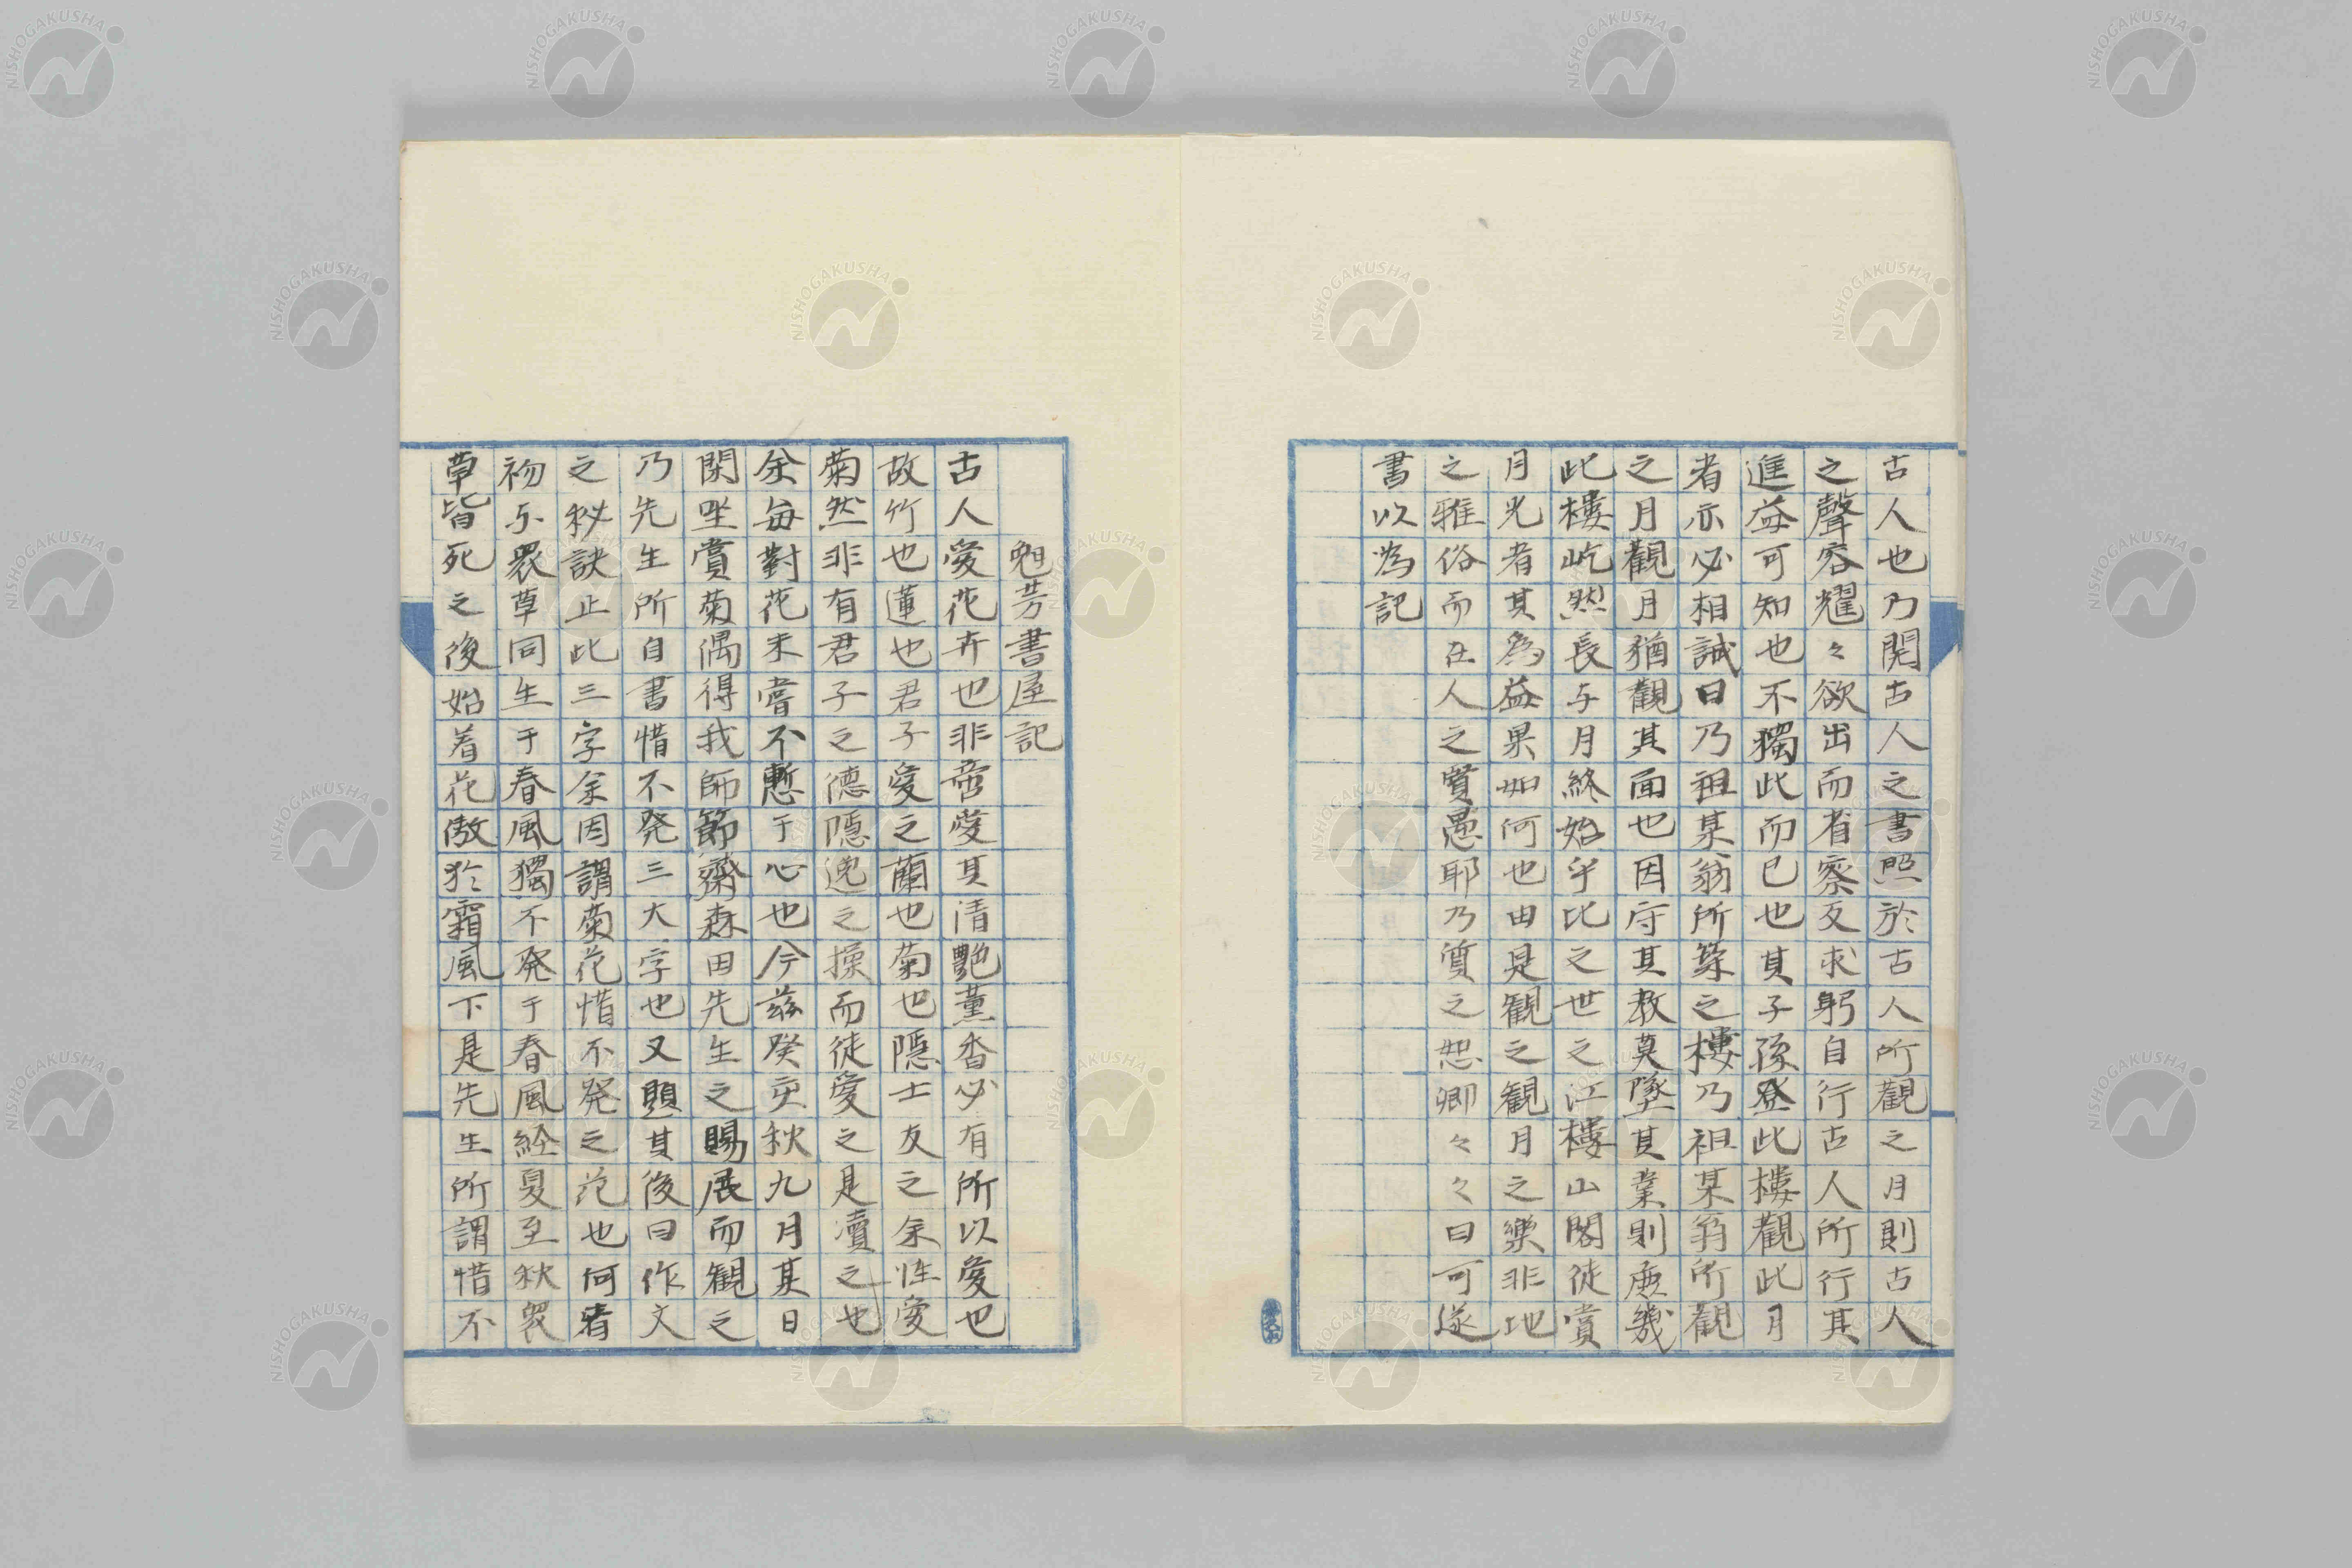 古人也乃閱古人之書照於古人所觀之月則古人
之聲容耀々欲出而省察反求躬自行古人所行其
進益可知也不獨此而已也其子孫登此樓觀此月
者亦必相誡曰乃祖某翁所築之樓乃祖某翁所觀
之月觀月猶觀其面也因守其教莫墜其業則庶幾
此樓屹然長与月終始乎比之世之江樓山閣徒賞
月光者其為益果如何也由是観之観月之樂非地
之雅俗而在人之賢愚耶乃質之恕卿々々曰可遂
書以為記
芳書屋記
古人愛花卉也非啻愛其清艶薰香必有所以愛也
故竹也蓮也君子愛之蘭也菊也隱士友之余性愛
菊然非有君子之德隱逸之操而徒愛之是瀆之也
余每對花未嘗不慙于心也今茲癸亥秋九月某日
閑坐賞菊偶得我師節齋森田先生之賜展而観之
乃先生所自書惜不発三大字也又顕其後曰作文
之秘訣止此三字余因謂菊花惜不発之花也何者
初与衆草同生于春風獨不発于春風経夏至秋衆
草皆死之後始着花傲於霜風下是先生所謂惜不